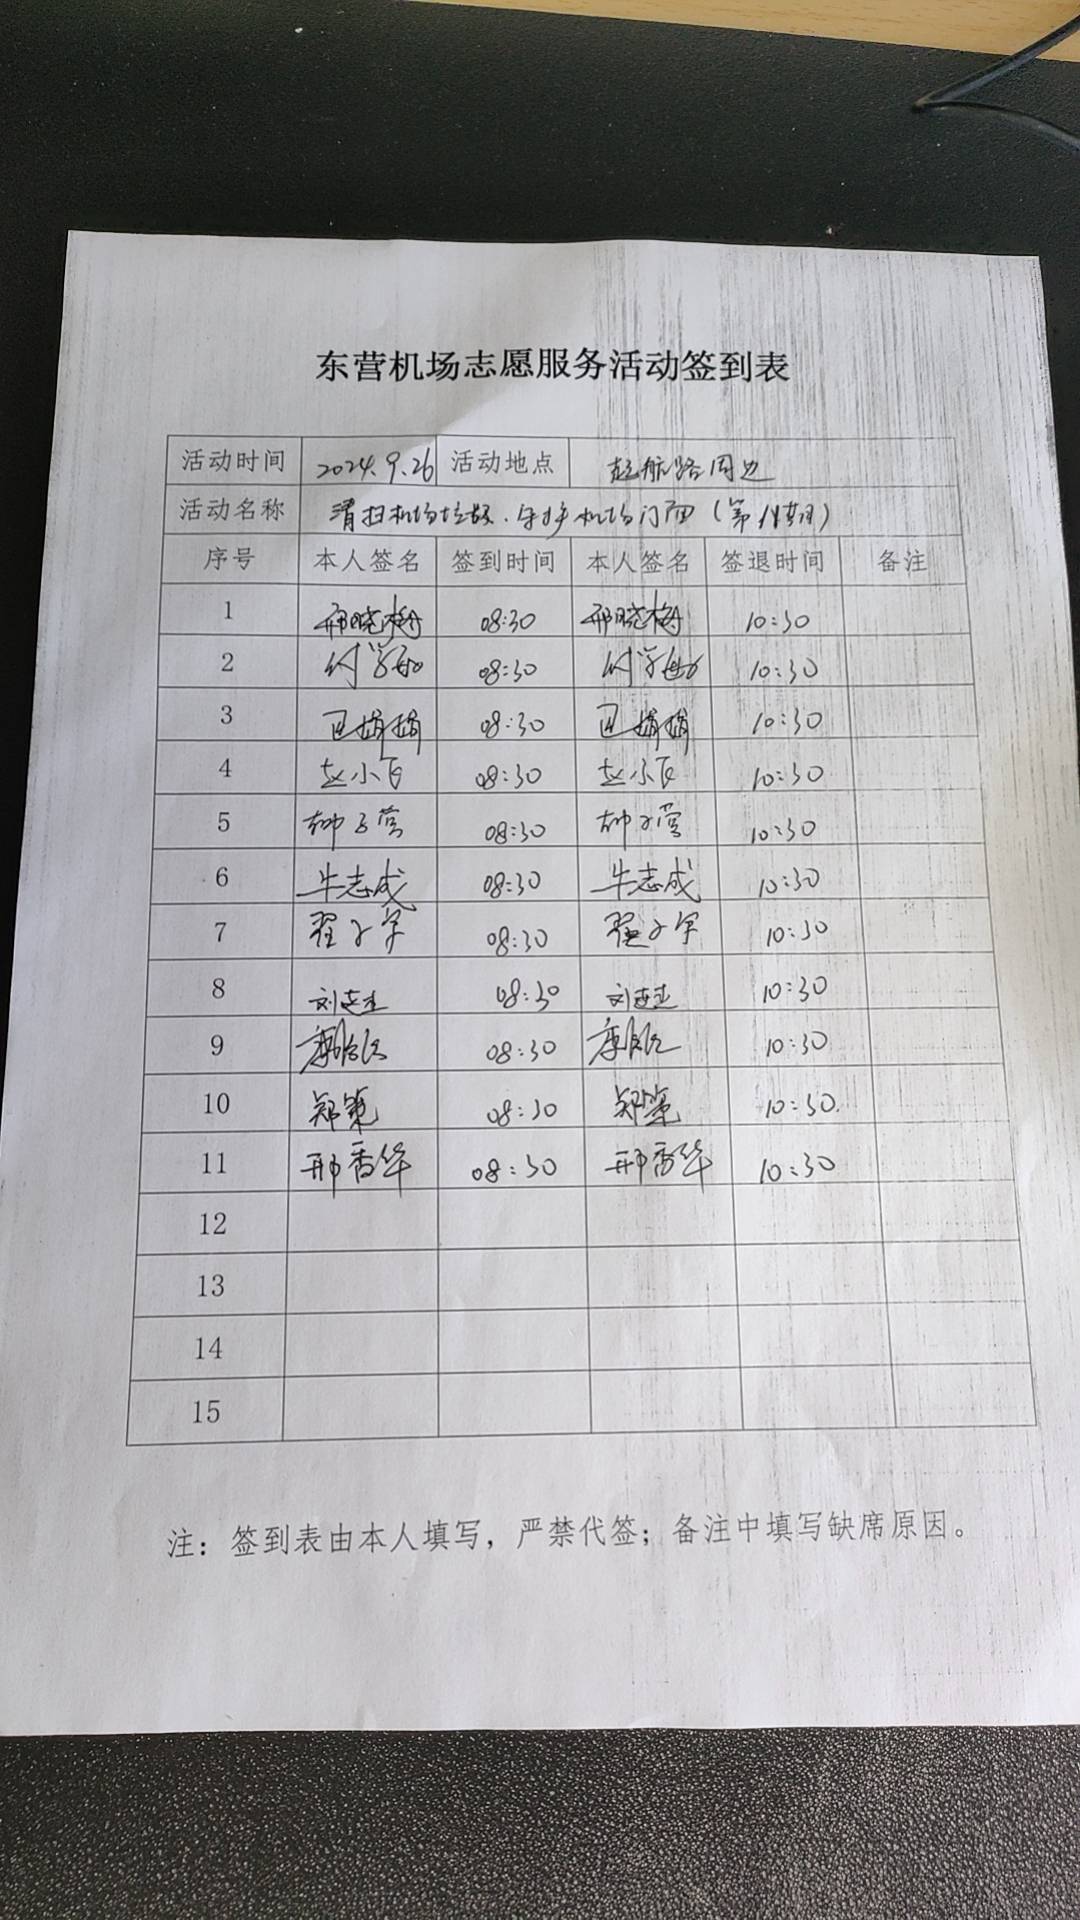 东营机场志愿服务活动签到表
活动时间 2024.9.26 活动地点 起航路周边
活动名称 清扫机场垃圾.守护机场门面(第 期)
序号 本人签名 签到时间 本人签名 签退时间 备注
1 邢晓梅 08:30 邢晓梅 10:30
2 付学 08:30 付学 10:30
3 巴娟娟 08:30 巴娟娟 10:30
4 赵小 08:30 赵小 10:30
5 08:30 10:30
6 牛志成 08:30 牛志成 10:30
7 翟子宇 08:30 翟子宇 10:30
8 刘志杰 08:30 刘志杰 10:30
9 08:30 10:30
10 郑策 08:30 郑策 10:30
11 邢香华 08:30 邢香华 10:30
12
13
14
15
注：签到表由本人填写，严禁代签；备注中填写缺席原因。